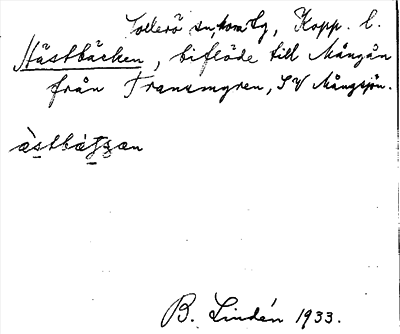 Sollerö sn, kom Lg, Kopp. l.
Hästbäcken, biflöde till Mångån
från Transmyren, SV Mångsjön.
àstbàʒ̣ʒan
B. Lindén 1933.